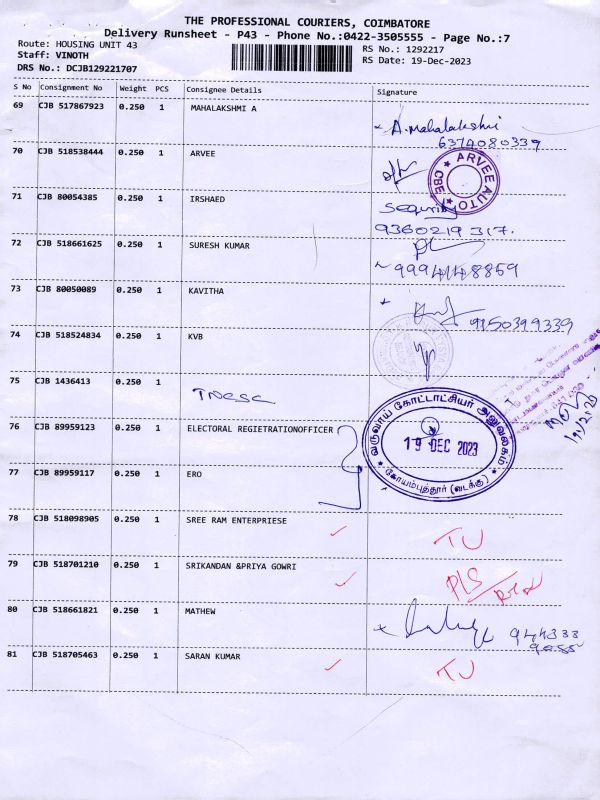 THE PROFESSIONAL COURIERS, COIMBATORE
Delivery Runsheet - P43 - Phone No.:0422-3505555 - Page No.:7
Route: HOUSING UNIT 43
RS No.: 1292217
Staff: VINOTH
RS Date: 19-Dec-2023
DRS No.: DCJB129221707
S No Consignment No Weight PCS Consignee Details Signature
69 CJB 517867923 0.250 1 MAHALAKSHMI A
A. Mahalakshmi
6374080339
70 CJB 518538444 0.250 1 ARVEE
ARVEE AUTO CBE
71 CJB 80054385 0.250 1 IRSHAED
Sequrity
9360219317.
72 CJB 518661625 0.250 1 SURESH KUMAR
9994148859
73 CJB 80050089 0.250 1 KAVITHA
9150399339
74 CJB 518524834 0.250 1 KVB
75 CJB 1436413 0.250 1
வருவாய் கோட்டாட்சியர் அலுவலகம்
76 CJB 89959123 0.250 1 ELECTORAL REGIETRATIONOFFICER
19 DEC 2023
77 CJB 89959117 0.250 1 ERO
கோயம்புத்தூர் (வடக்கு)
78 CJB 518098905 0.250 1 SREE RAM ENTERPRIESE
TU
79 CJB 518701210 0.250 1 SRIKANDAN &PRIYA GOWRI
PLS
80 CJB 518661821 0.250 1 MATHEW
944333
81 CJB 518705463 0.250 1 SARAN KUMAR
TU